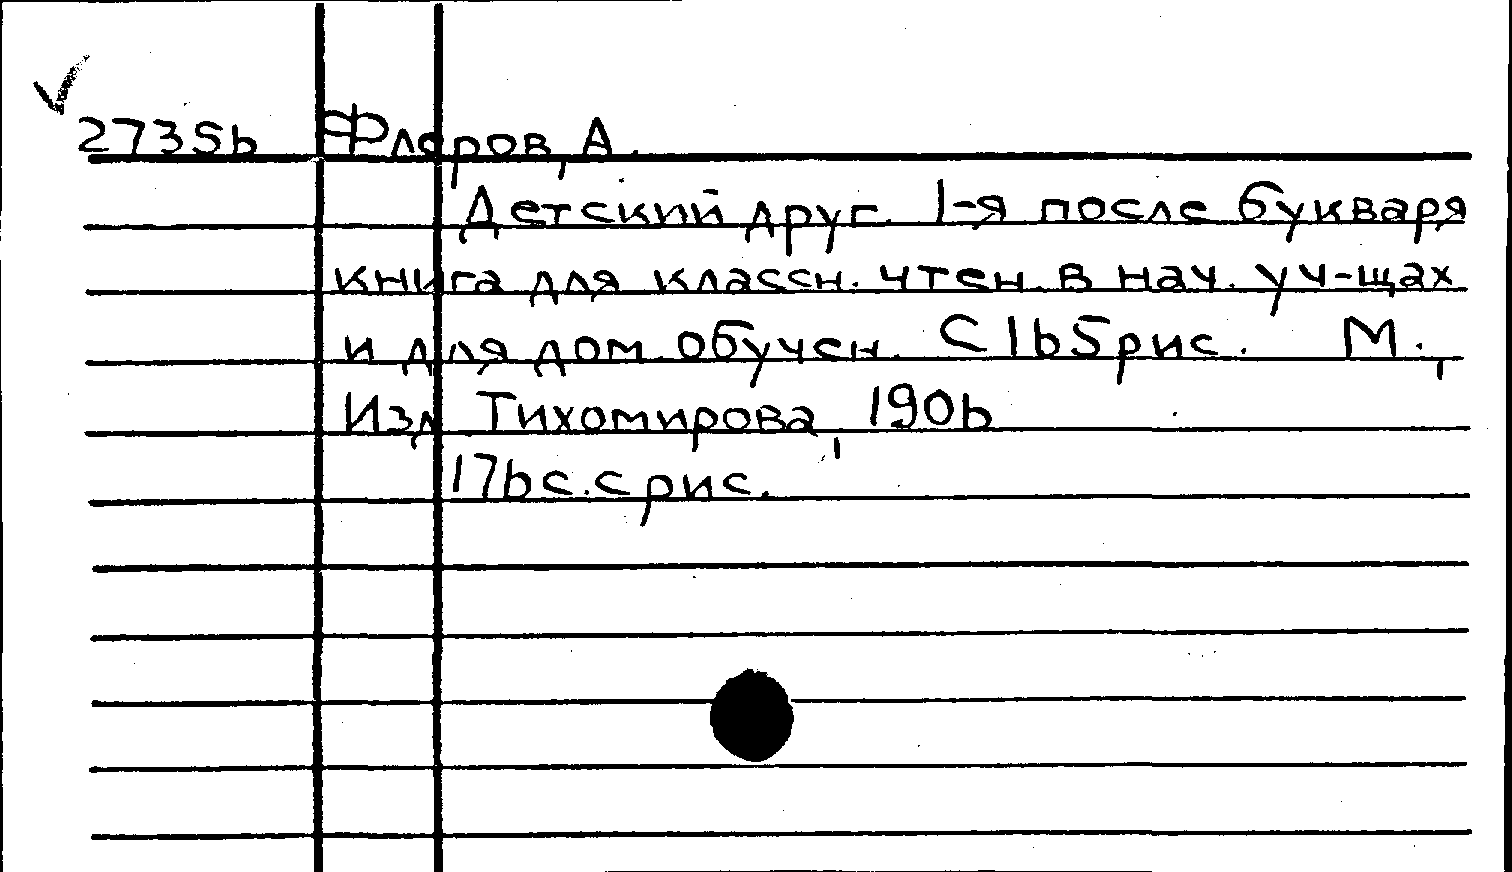 27356 Флеров, А.
Детский друг. 1-я после букваря
книга для классн. чтен. в нач. уч-щах
и для дом. обучен. С 165 рис. М.,
Изд. Тихомирова, 1906
176 с. с рис.